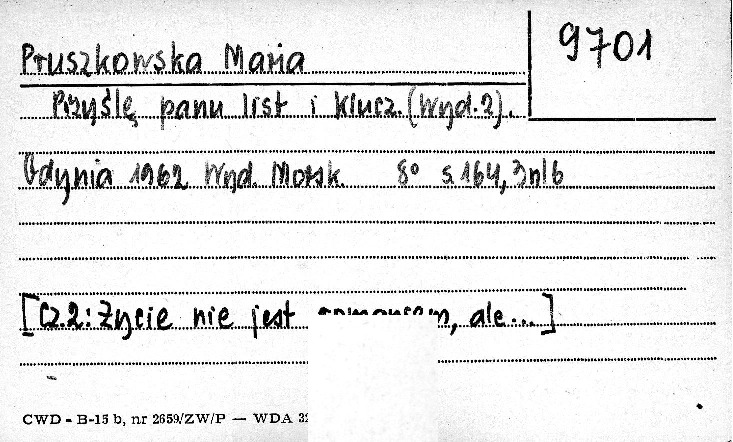 9701
Pruszkowska Maria
Przyślę panu list i klucz. (Wyd. 2).
Gdynia 1962 Wyd. Morsk. 8° s. 164, 3 nlb
[Cz. 2: Życie nie jest romansem, ale...]
CWD - B-15 b, nr 2659/ZW/P — WDA